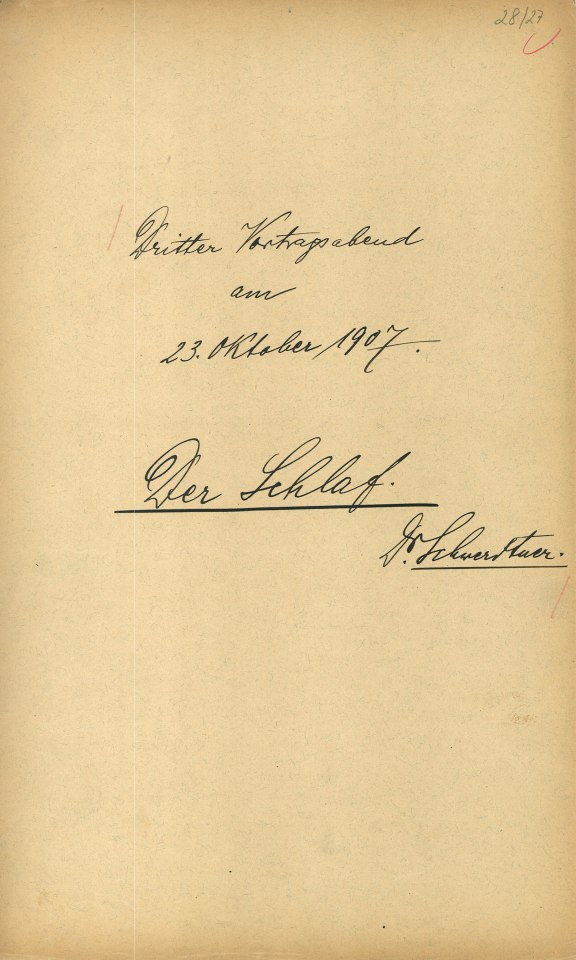 28/27
Dritter Vortragsabend
am
23. Oktober 1907.
Der Schlaf.
Dr. Schwerdtner.